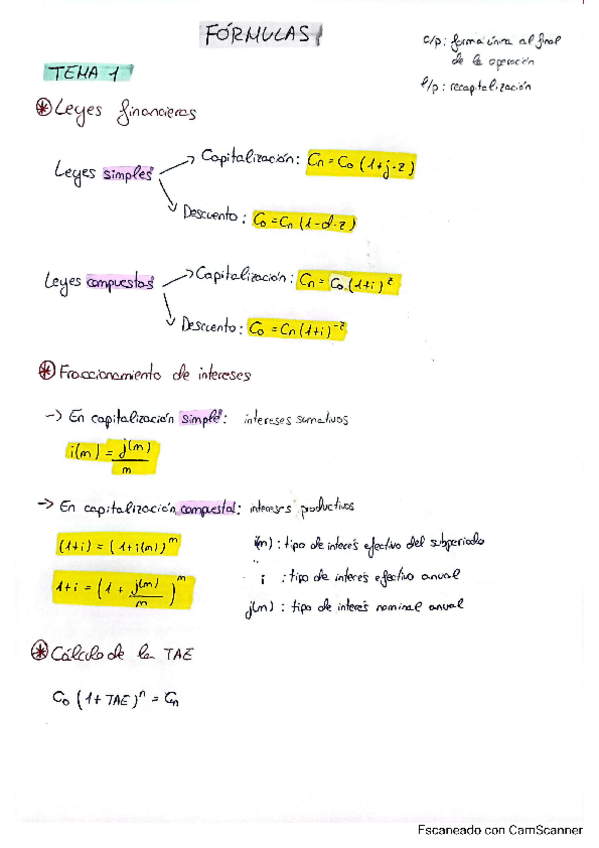 FÓRMULAS
c/p: forma única al final
de la operación
l/p: recapitalización
TEMA 1
* Leyes financieras
Leyes simples
Capitalización: Cn = C0 (1+j·z)
Descuento: C0 = Cn (1-d·z)
Leyes compuestas
Capitalización: Cn = C0 (1+i)^z
Descuento: C0 = Cn (1+i)^-z
* Fraccionamiento de intereses
-> En capitalización simple: intereses sumativos
i(m) = j(m)/m
-> En capitalización compuesta: intereses productivos
(1+i) = (1+i(m))^m
i(m): tipo de interés efectivo del subperiodo
i : tipo de interés efectivo anual
1+i = (1 + j(m)/m)^m
j(m) : tipo de interés nominal anual
* Cálculo de la TAE
C0 (1+TAE)^n = Cn
Escaneado con CamScanner